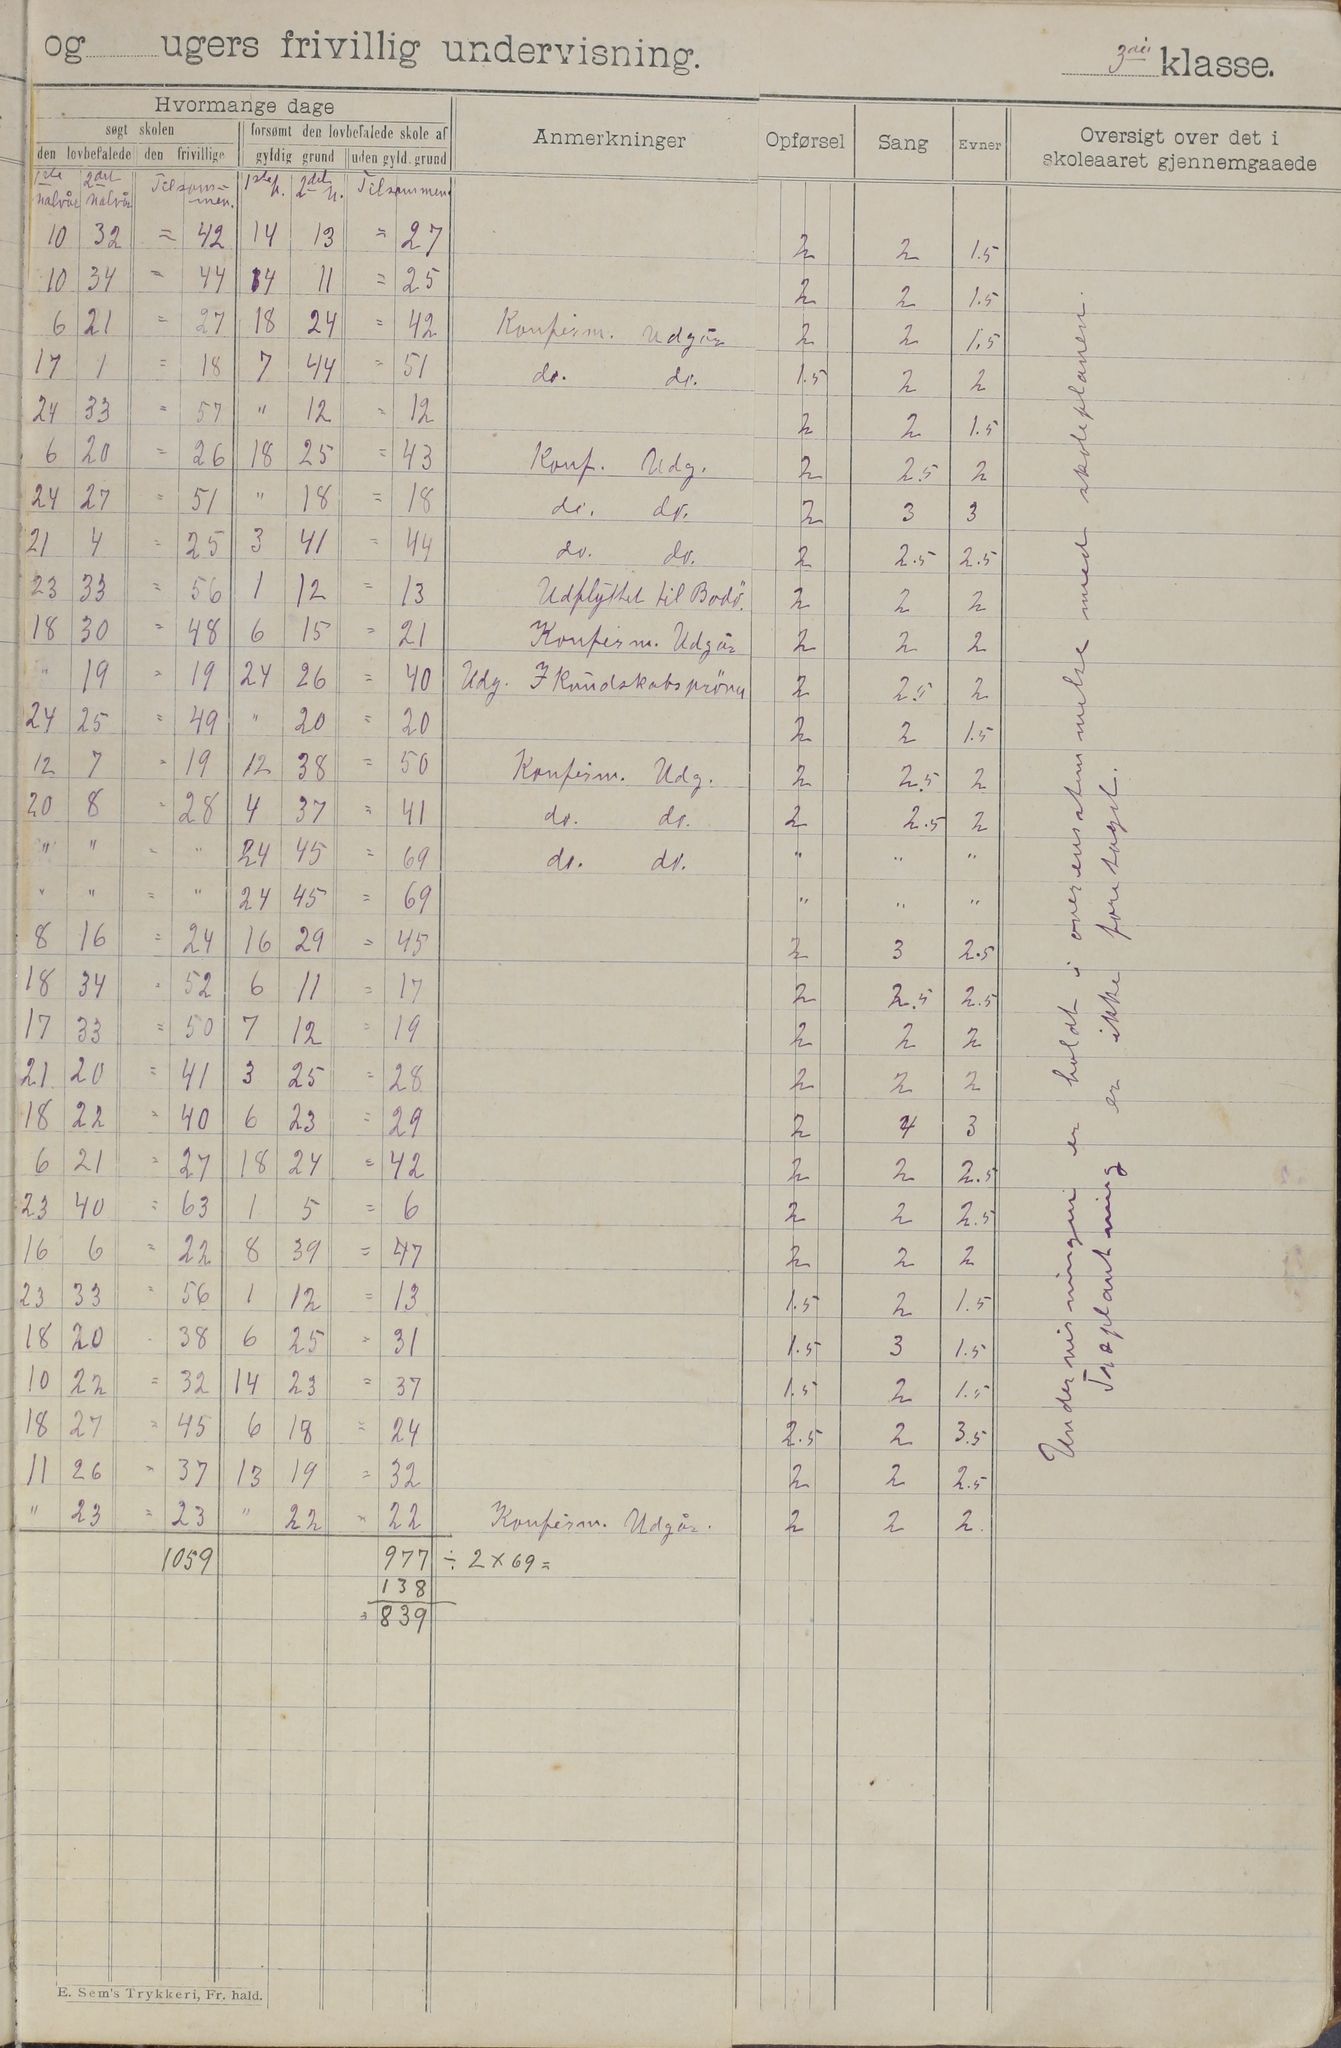 og ugers frivillig undervisning. 3die klasse.
Hvormange dage
søgt skolen forsømt den lovbefalede skole af Anmerkninger Opførsel Sang Evner Oversigt over det i skoleaaret gjennemgaaede
den lovbefalede den frivillige gyldig grund uden gyld. grund
1ste halvår 2det halvår Tilsammen. 1ste h. 2det h. Tilsammen
10 32 = 42 14 13 = 27 2 2 1.5
10 34 = 44 14 11 = 25 2 2 1.5
6 21 = 27 18 24 = 42 Konfirm. Udgår 2 2 1.5
17 1 = 18 7 44 = 51 do. do. 1.5 2 2
24 33 = 57 " 12 = 12 2 2 1.5
6 20 = 26 18 25 = 43 Konf. Udg. 2 2.5 2
24 27 = 51 " 18 = 18 do. do. 2 3 3
21 4 = 25 3 41 = 44 do. do. 2 2.5 2.5
23 33 = 56 1 12 = 13 Udflyttet til Bodö. 2 2 2
18 30 = 48 6 15 = 21 Konfirm. Udgår 2 2 2
" 19 = 19 24 26 = 40 Udg. I Kundskabspröven 2 2.5 2
24 25 = 49 " 20 = 20 2 2 1.5
12 7 = 19 12 38 = 50 Konfirm. Udg. 2 2.5 2
20 8 = 28 4 37 = 41 do. do. 2 2.5 2
" " = " 24 45 = 69 do. do. " " "
" " = " 24 45 = 69 " " "
8 16 = 24 16 29 = 45 2 3 2.5
18 34 = 52 6 11 = 17 2 2.5 2.5
17 33 = 50 7 12 = 19 2 2 2
21 20 = 41 3 25 = 28 2 2 2
18 22 = 40 6 23 = 29 2 4 3
6 21 = 27 18 24 = 42 2 2 2.5
23 40 = 63 1 5 = 6 2 2 2.5
16 6 = 22 8 39 = 47 2 2 2
23 33 = 56 1 12 = 13 1.5 2 1.5
18 20 = 38 6 25 = 31 1.5 3 1.5
10 22 = 32 14 23 = 37 1.5 2 1.5
18 27 = 45 6 18 = 24 2.5 2 3.5
11 26 = 37 13 19 = 32 2 2 2.5
" 23 = 23 " 22 = 22 Konfirm. Udgår. 2 2 2.
1059 977 ÷ 2 × 69 =
138
= 839
Undervisningen er holdt i overensstemmelse med skoleplanen.
Træplantning er ikke foretaget.
E. Sem's Trykkeri, Fr. hald.